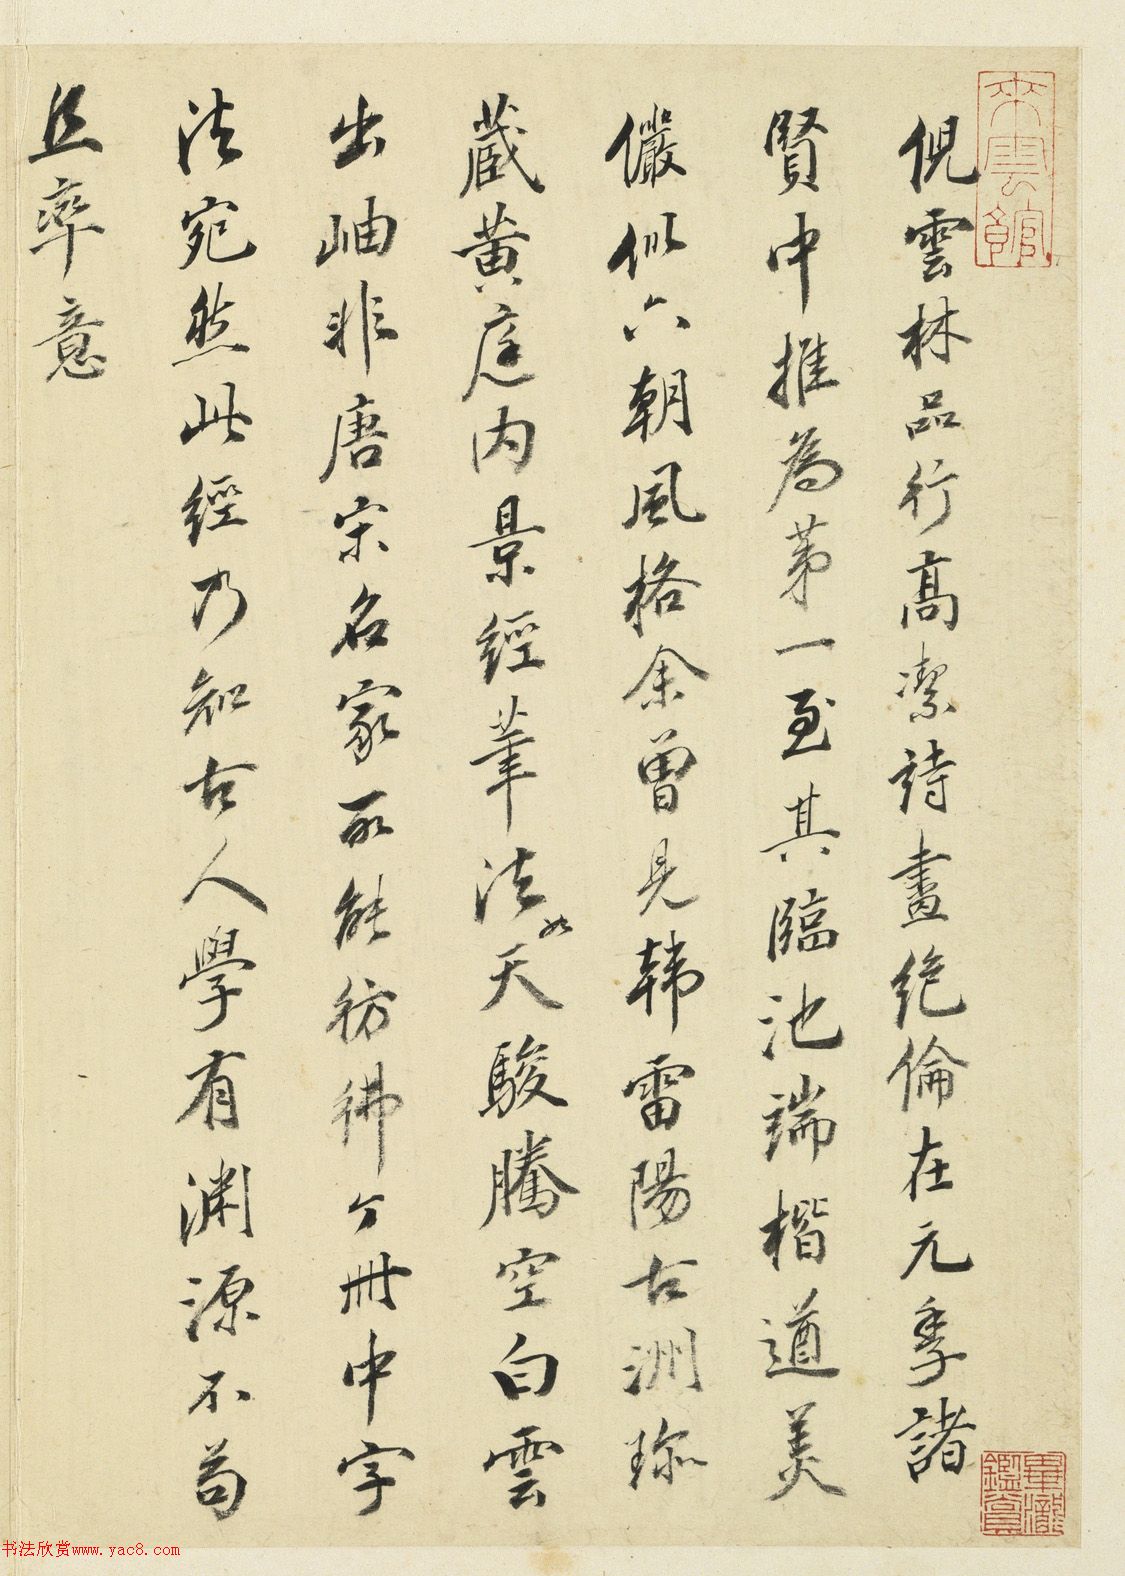 倪雲林品行高潔詩畫絕倫在元季諸
賢中推為第一至其臨池端楷遒美
儼似六朝風格余曾見韩雷陽古洲珎
蔵黄庭内景經筆法如天駿騰空白雲
出岫非唐宋名家所能彷彿今冊中字
法宛然此經乃知古人學有淵源不苟
且率意
來雲館
畢瀧鑑賞
书法欣赏www.yac8.com